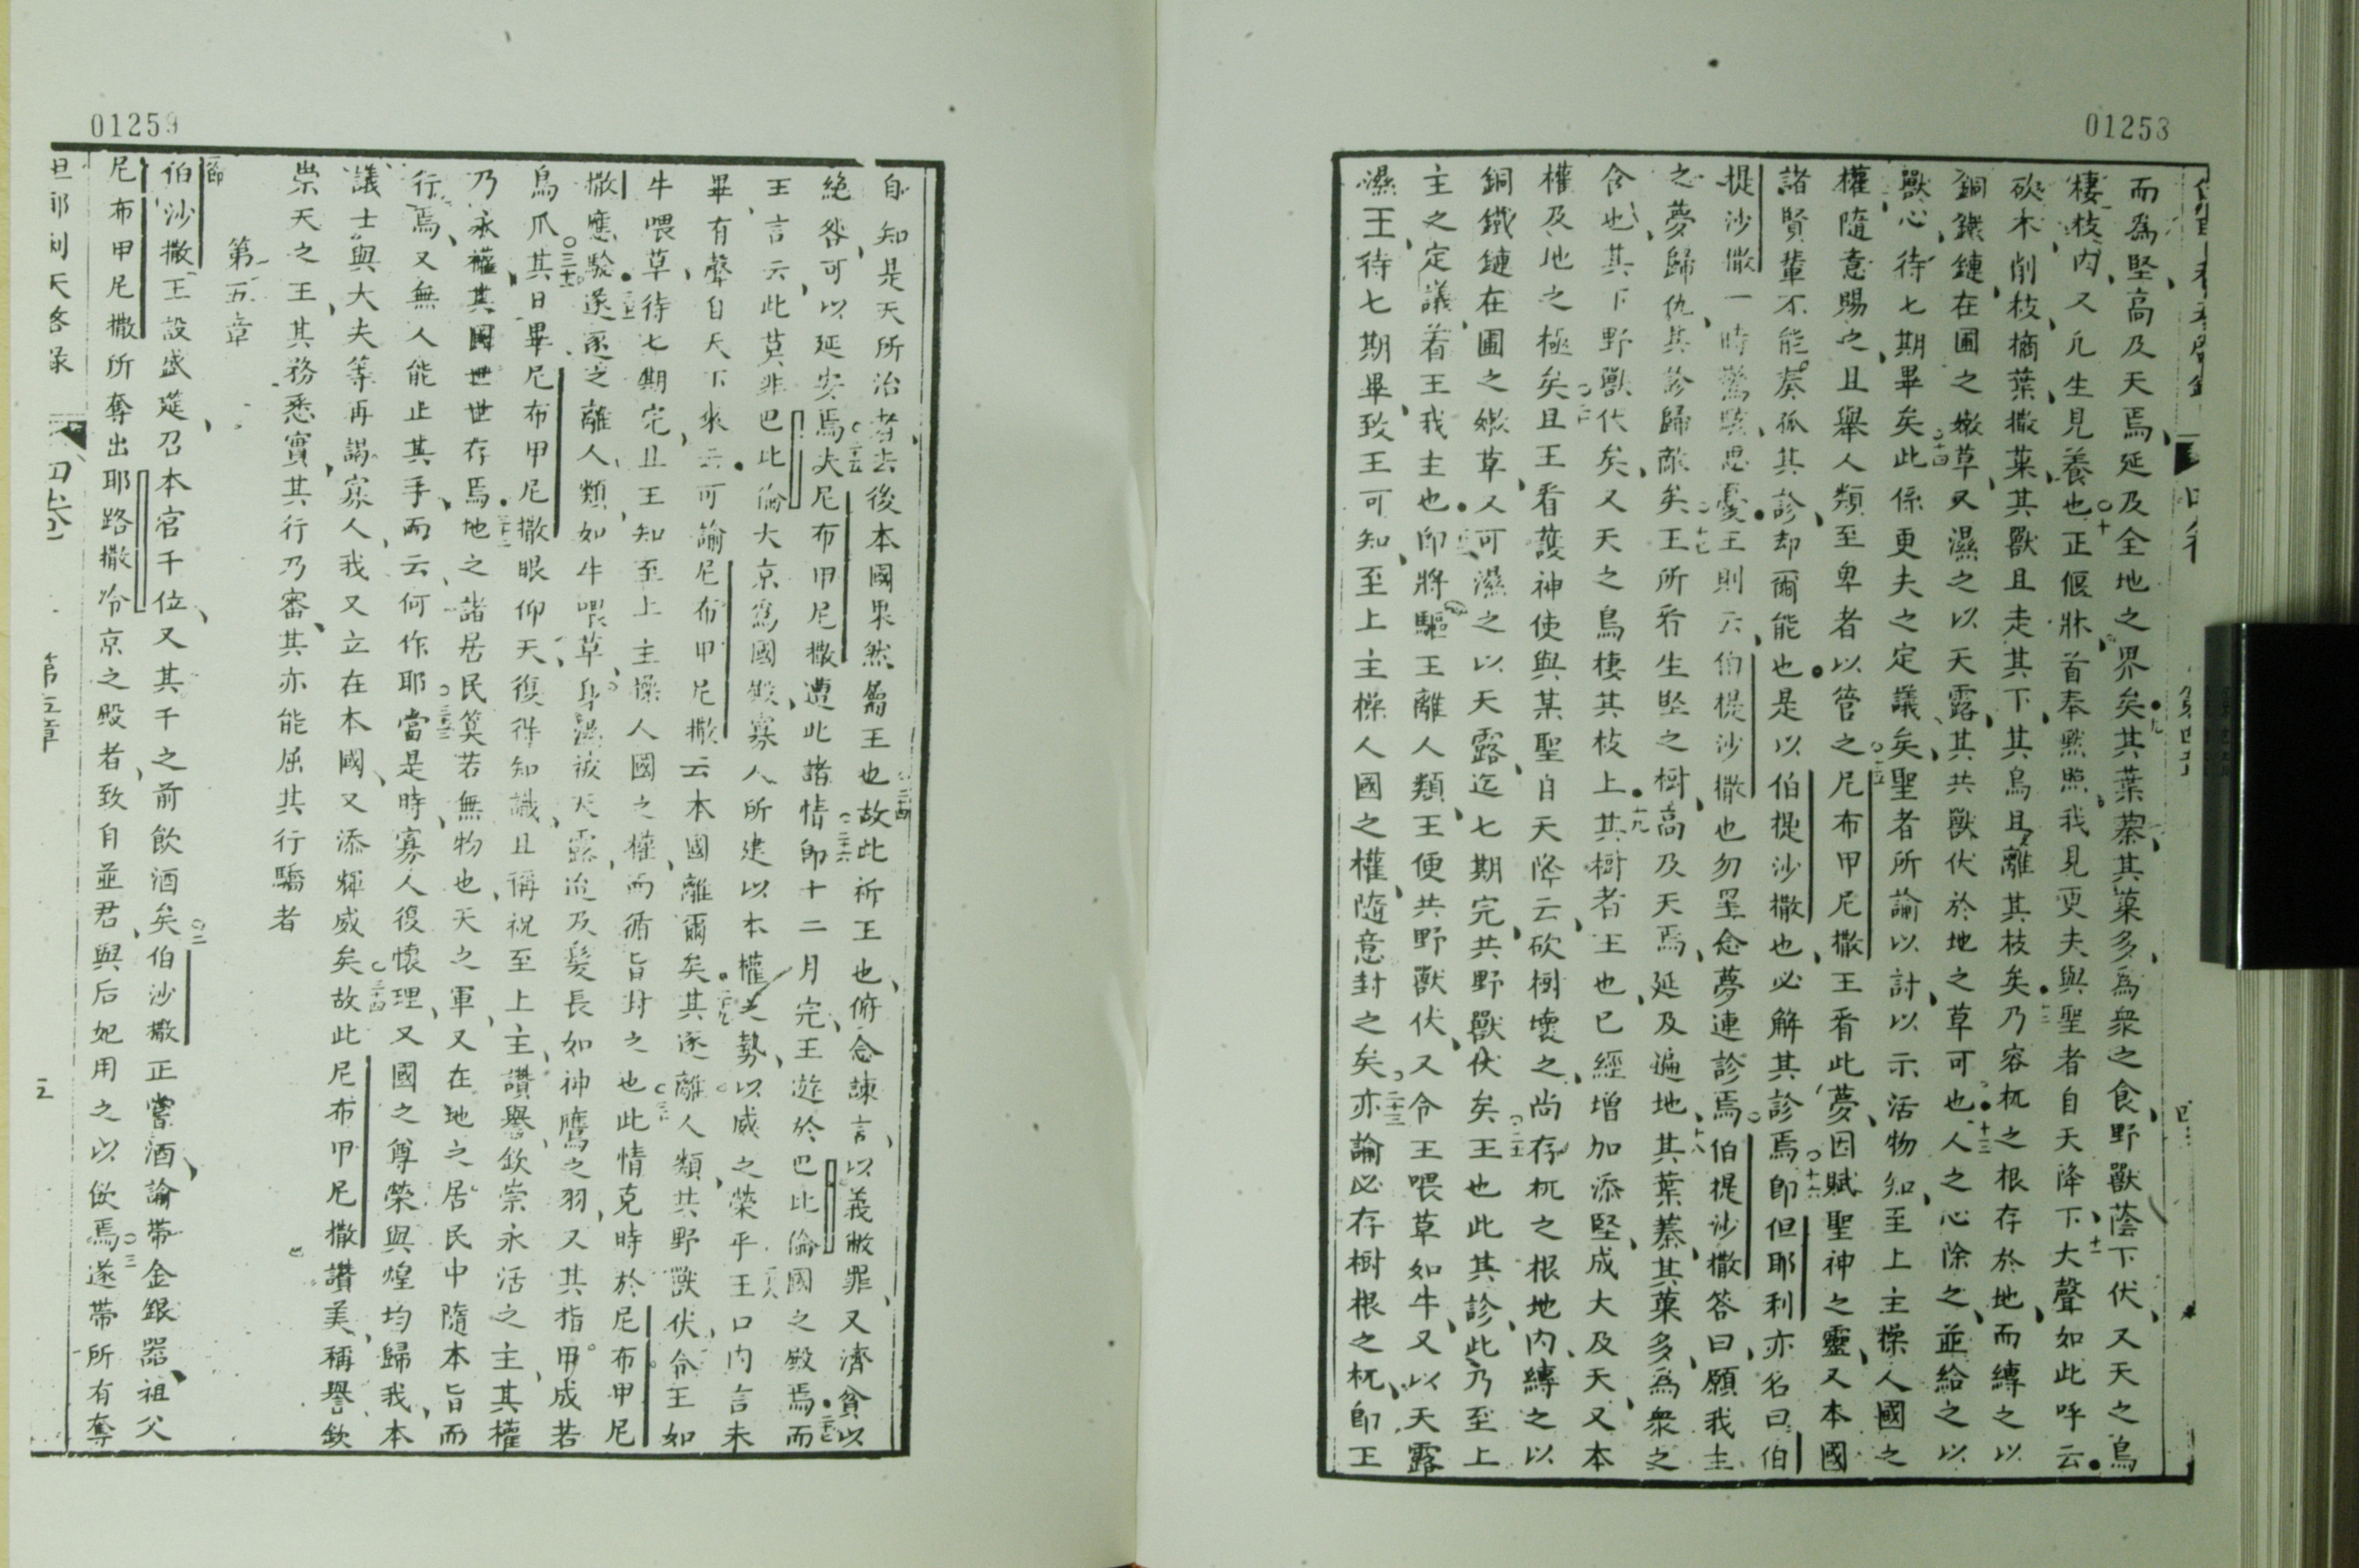 01253
而為堅高及天焉延及全地之界矣其葉蓁其菓多為衆之食野獸蔭下伏又天之鳥
棲枝内又凢生見養也正偃牀首奉㷖照我見更夫與聖者自天降下大聲如此呼云
砍木削枝摘葉撒菓其獸且走其下其鳥且離其枝矣乃容杌之根存於地而縛之以
銅鐵鏈在圃之嫩草又濕之以天露其共獸伏於地之草可也人之心除之並給之以
獸心待七期畢矣此係更夫之定議矣聖者所諭以討以示活物知至上主操人國之
權隨意賜之且舉人類至卑者以管之尼布甲尼撒王看此夢因賦聖神之靈又本國
諸賢輩不能奏孤其診却爾能也是以伯提沙撒也必解其診焉即但耶利亦名曰伯
提沙撒一時驚駭思憂王則云伯提沙撒也勿罣念夢連診焉伯提沙撒答曰願我主
之夢歸仇其診歸敵矣王所看生堅之樹高及天焉延及遍地其葉蓁其菓多為衆之
食也其下野獸伏矣又天之鳥棲其枝上其樹者王也已經增加添堅成大及天又本
權及地之極矣且王看護神使與某聖自天降云砍樹壞之尚存杌之根地内縛之以
銅鐵鏈在圃之嫩草又可濕之以天露迄七期完共野獸伏矣王也此其診此乃至上
主之定議着王我主也即將驅王離人類王便共野獸伏又令王喂草如牛又以天露
濕王待七期畢致王可知至上主操人國之權隨意封之矣亦諭必存樹根之杌即王
01259
自知是天所治者去後本國果然屬王也故此祈王也俯念諫言以義敝罪又濟貧以
絶咎可以延安焉夫尼布甲尼撒遭此諸情即十二月完王遊於巴比倫國之殿焉而
王言云此莫非巴比倫大京為國殿寡人所建以本權之勢以威之榮乎王口内言未
畢有聲自天下來云可諭尼布甲尼撒云本國離爾矣其逐離人類共野獸伏令王如
牛喂草待七期完且王知至上主操人國之權而循旨封之也此情克時於尼布甲尼
撒應驗遂逐之離人類如牛喂草身濕被天露迨及髮長如神鷹之羽又其指甲成若
鳥爪其日畢尼布甲尼撒眼仰天復得知識且稱祝至上主讚譽欽崇永活之主其權
乃永權其國世世存焉地之諸居民算若無物也天之軍又在地之居民中隨本旨而
行焉又無人能止其手而云何作耶當是時寡人復懷理又國之尊榮與煌均歸我本
議士與大夫等再謁寡人我又立在本國又添輝威矣故此尼布甲尼撒讚美稱譽欽
崇天之王其務悉實其行乃審其亦能屈其行驕者
第五章
伯沙撒王設盛筵召本官千位又其千之前飲酒矣伯沙撒正嘗酒諭帶金銀器祖父
尼布甲尼撒所奪出耶路撒冷京之殿者致自並君與后妃用之以飲焉遂帶所有奪